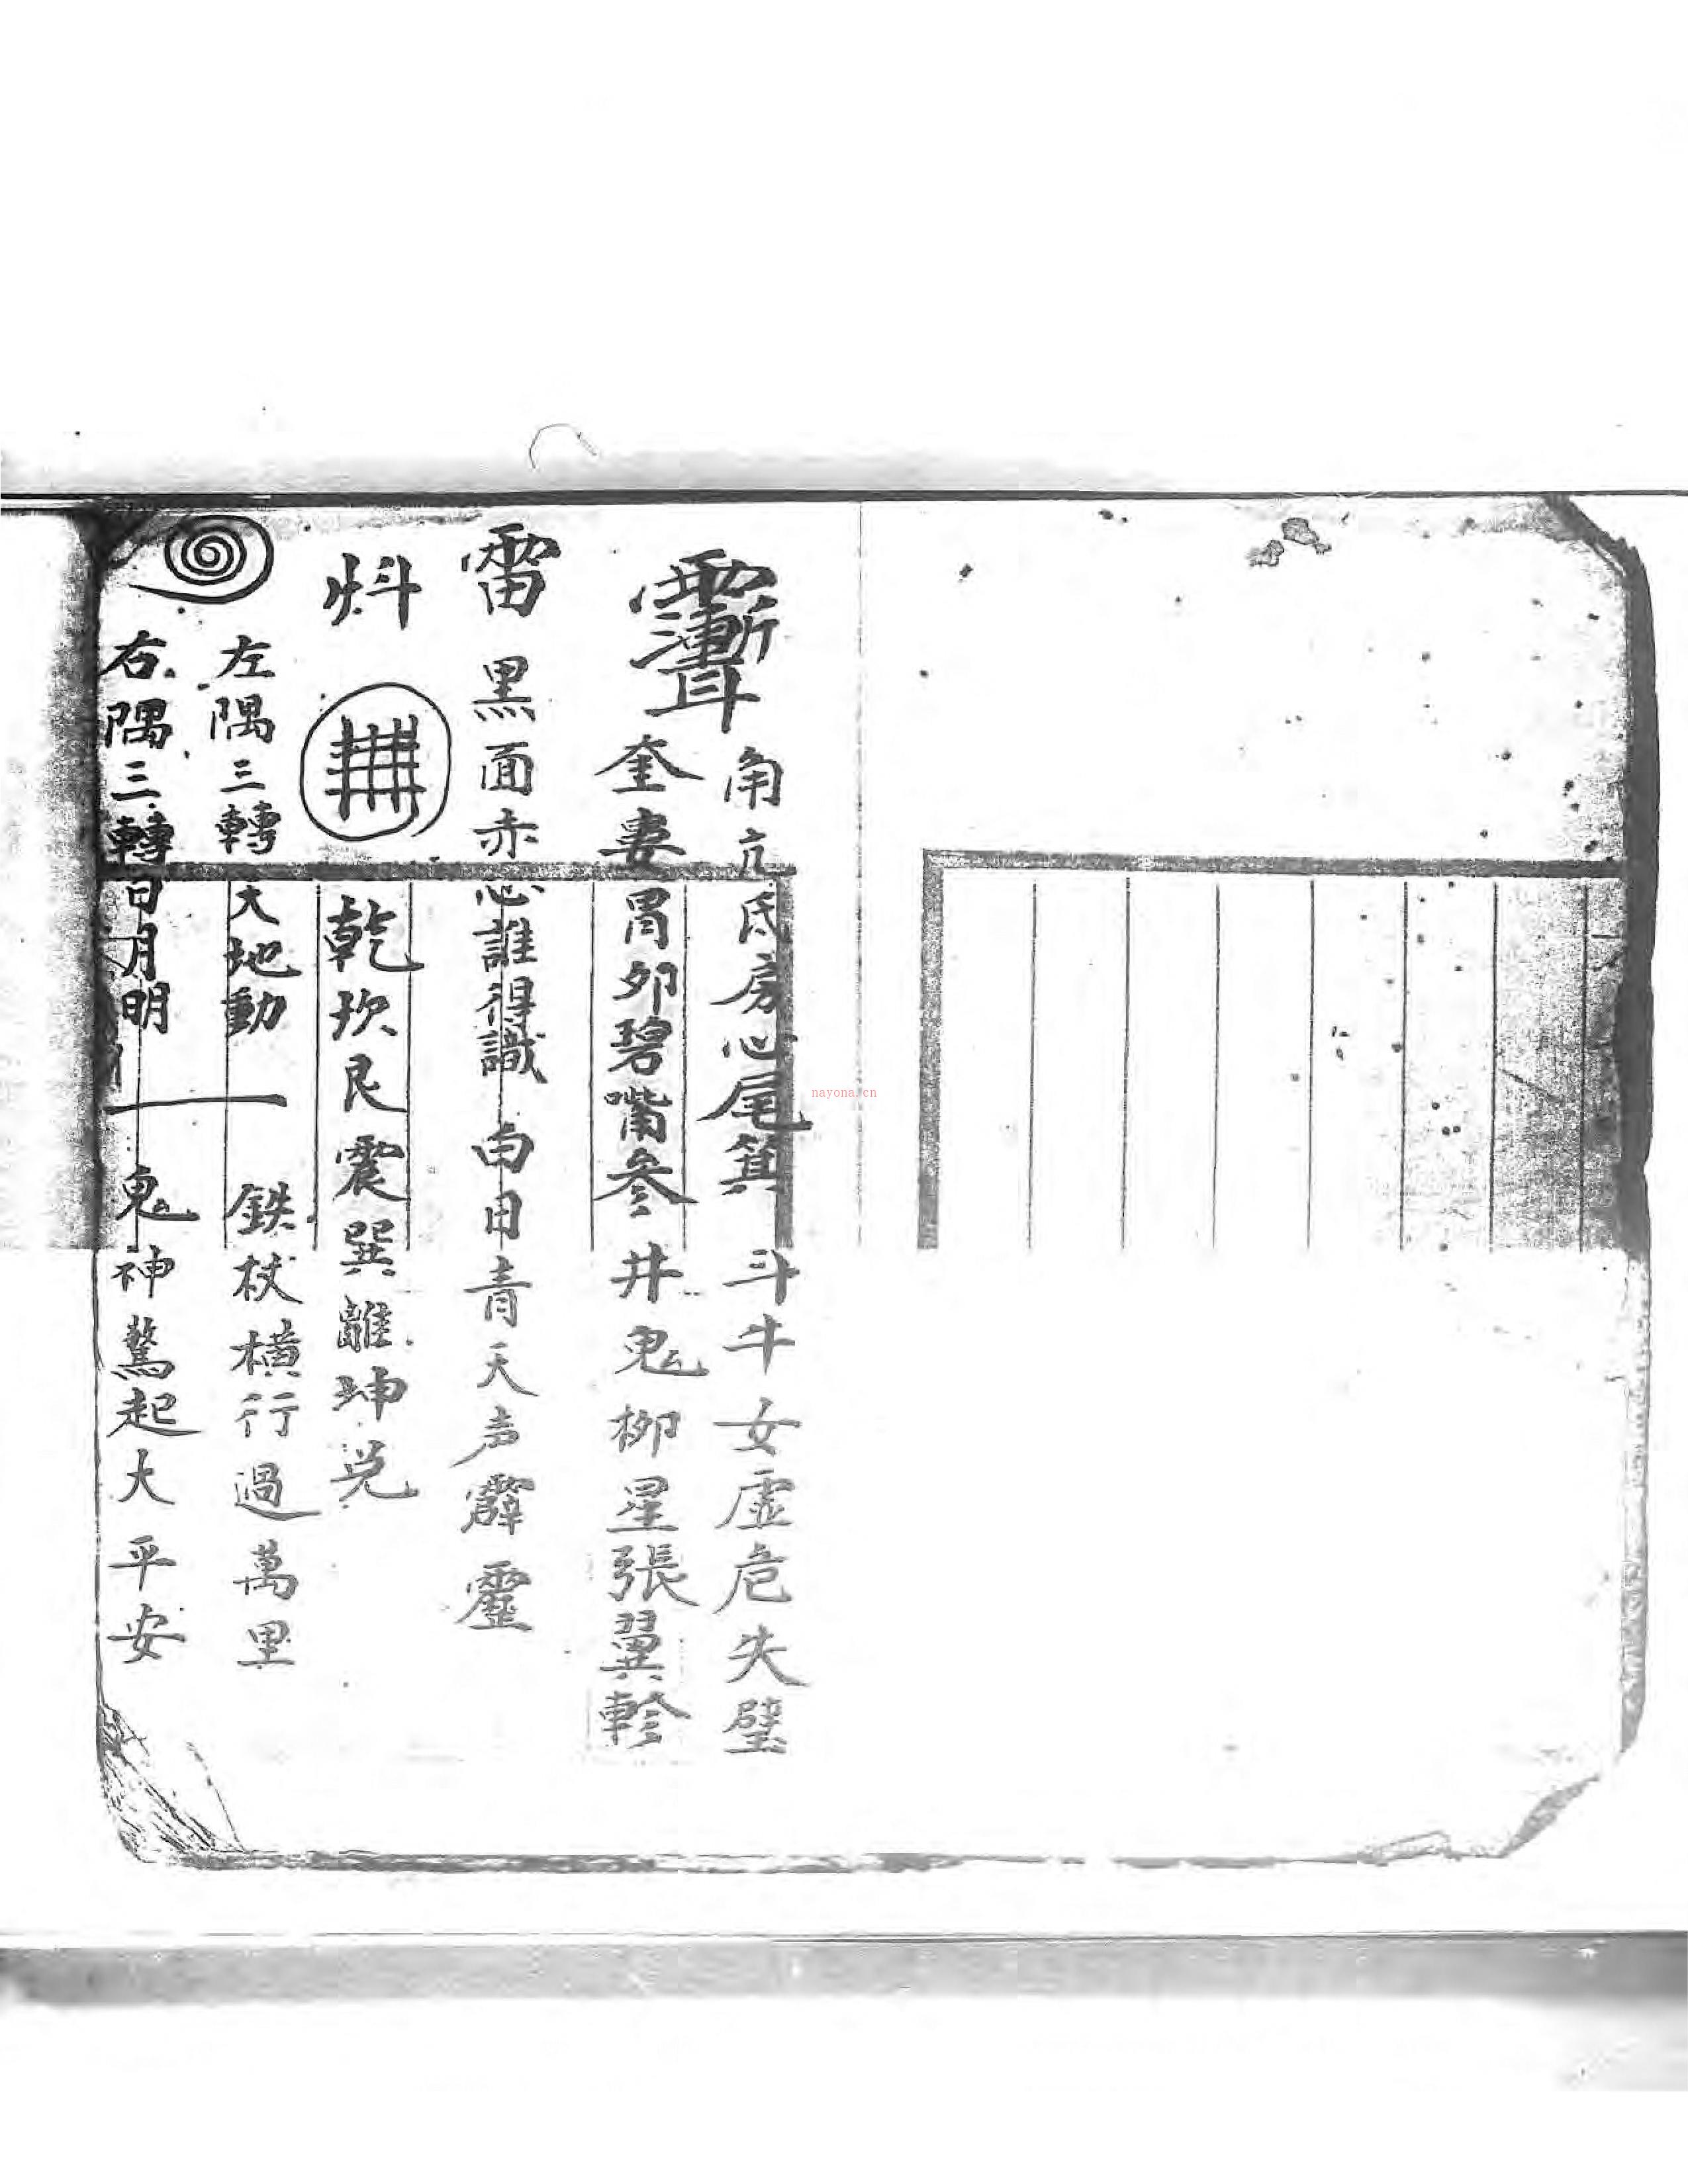 角亢氐房心尾箕斗牛女虚危失璧
奎婁胃夘碧嘴參井鬼柳星張翼軫
雷黑面赤心誰得識白日青天声霹靂
炓
乾坎艮震巽離坤兑
左隅三轉天地動
鉄杖橫行過萬里
右隅三轉日月明
鬼神驚起大平安
nayona.cn